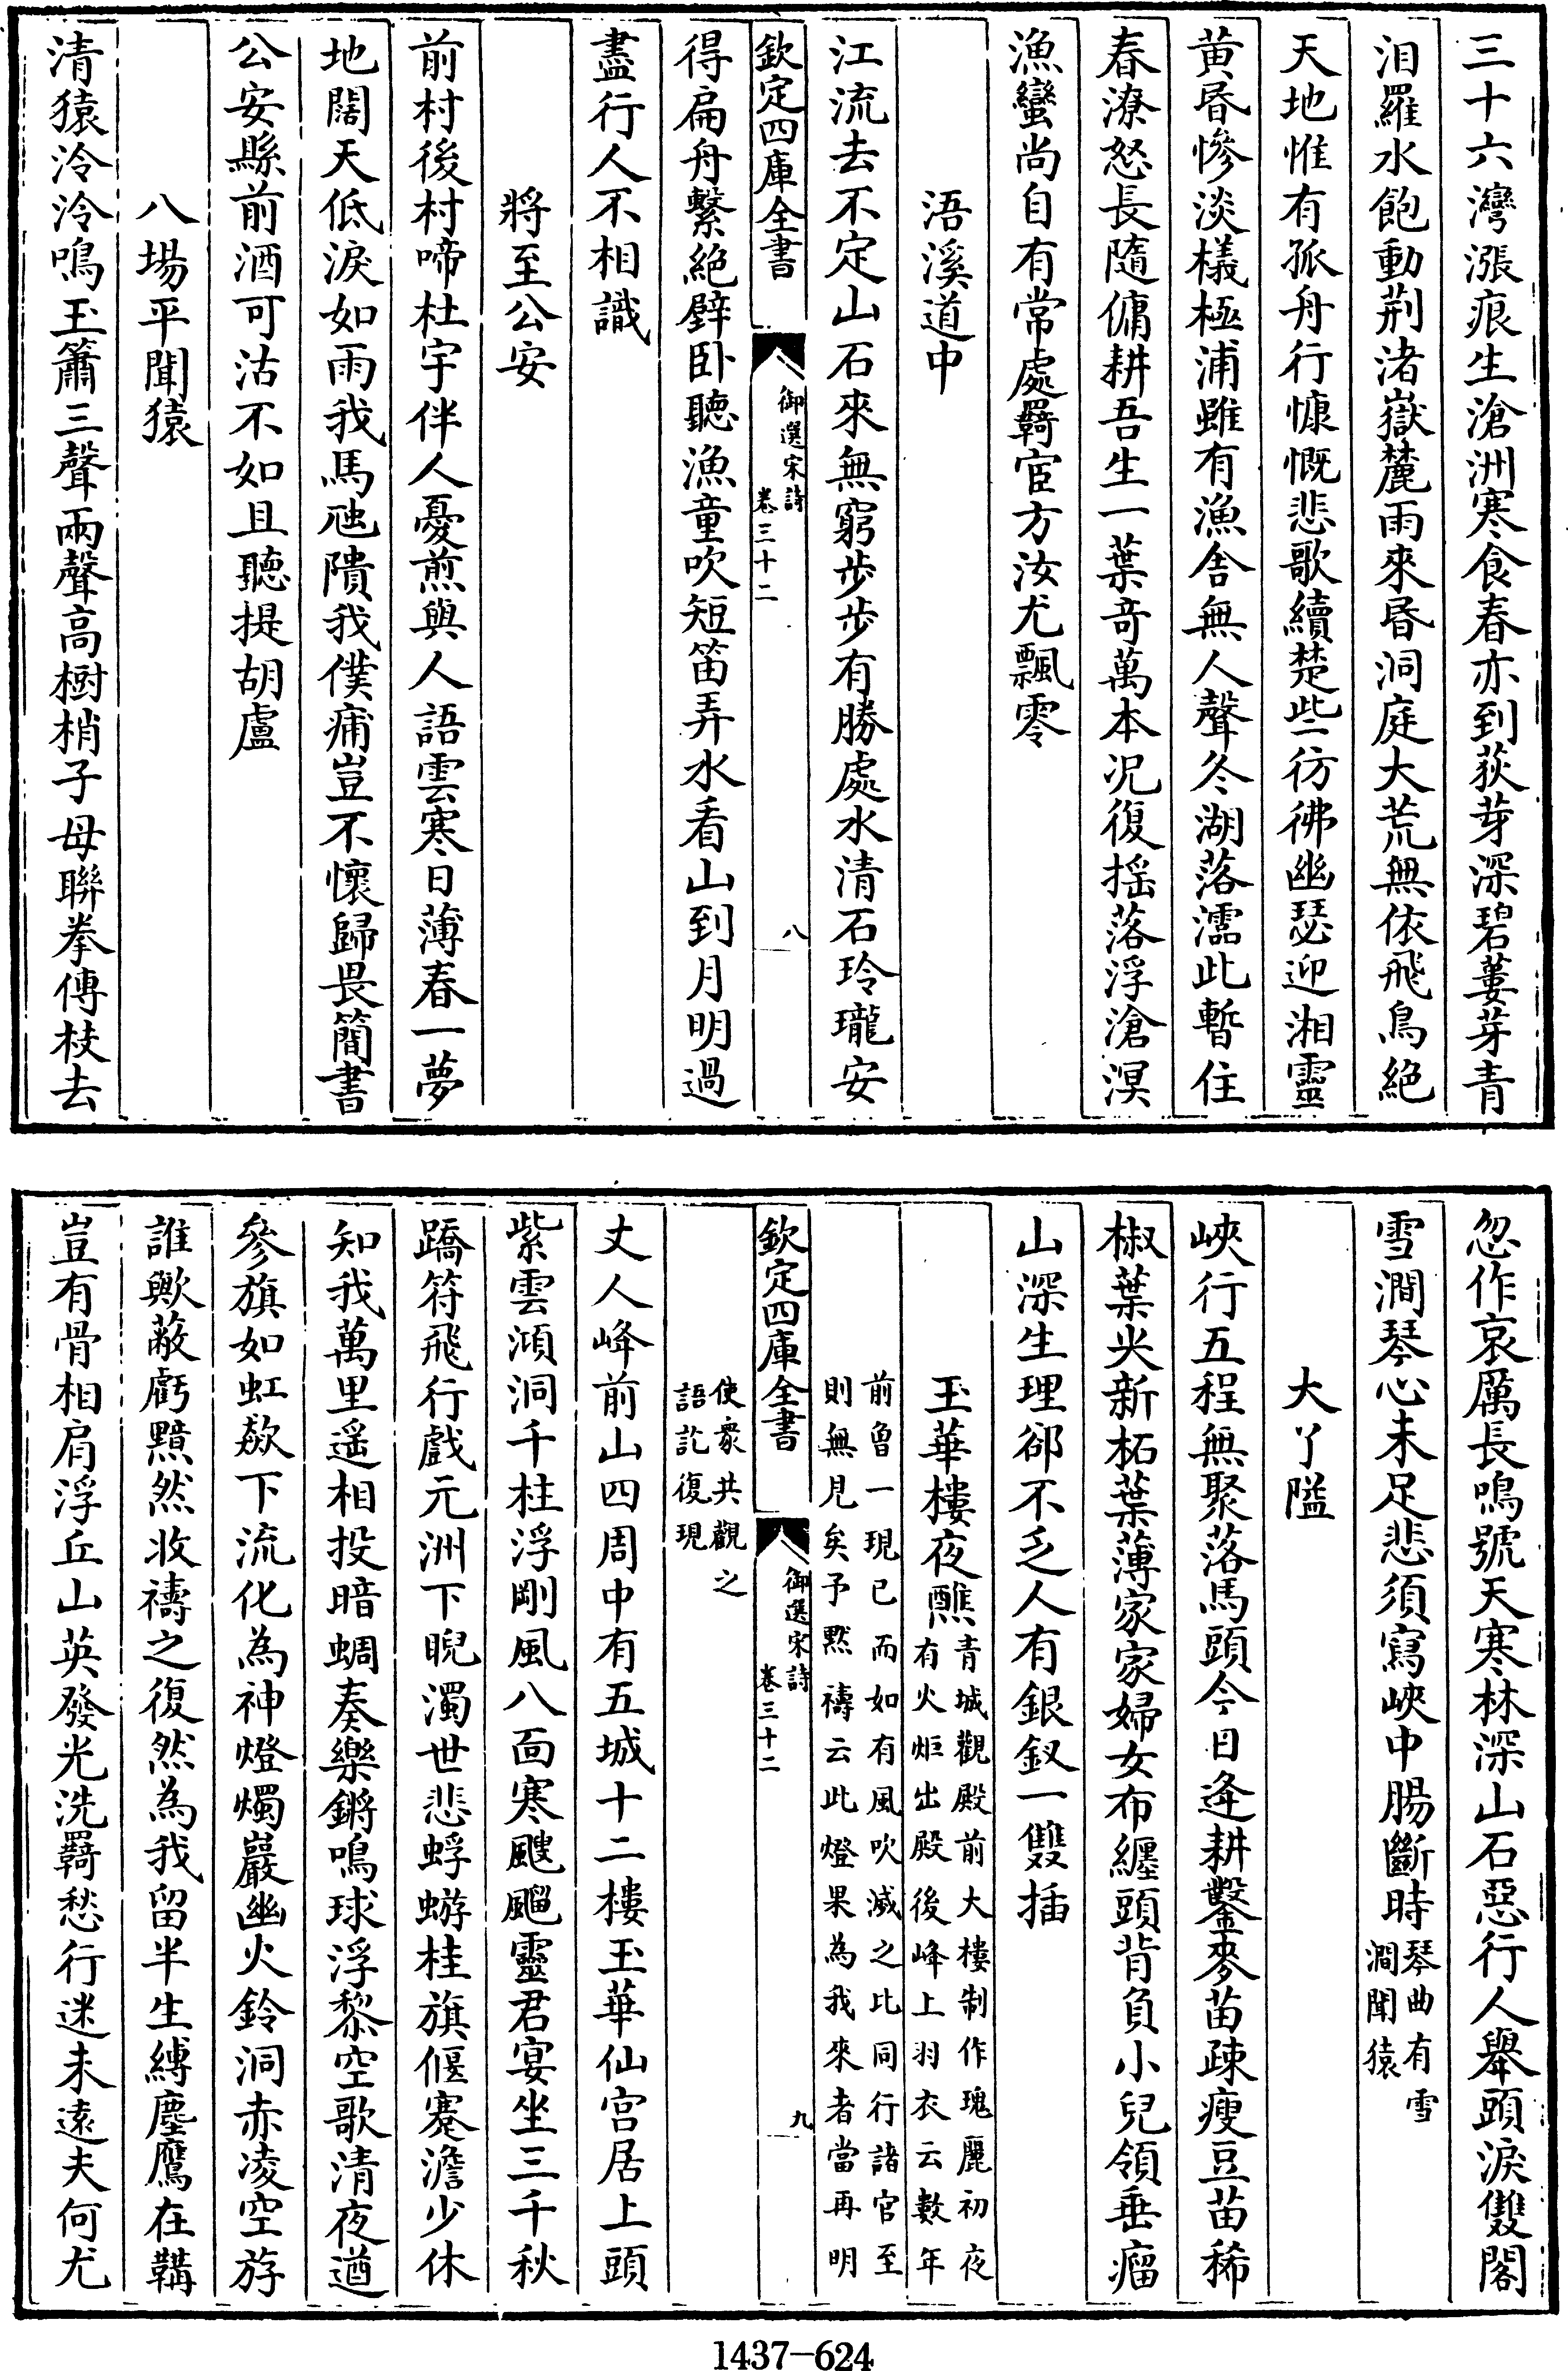 三十六灣漲痕生滄洲寒食春亦到荻芽深碧蔞芽青
汨羅水飽動荆渚嶽麓雨來昏洞庭大荒無依飛鳥絶
天地惟有孤舟行慷慨悲歌續楚些彷彿幽瑟迎湘靈
黄昏慘淡檥極浦雖有漁舍無人聲冬湖落濡此暫住
春潦怒長隨傭耕吾生一葉竒萬本况復揺落浮滄溟
漁蠻尚自有常處羇宦方汝尤飄零
浯溪道中
江流去不定山石來無窮步步有勝處水清石玲瓏安
欽定四庫全書
御選宋詩
卷三十二
八
得扁舟繫絶壁卧聽漁童吹短笛弄水看山到月明過
盡行人不相識
將至公安
前村後村啼杜宇伴人憂煎與人語雲寒日薄春一夢
地闊天低淚如雨我馬虺隤我僕痡豈不懷歸畏簡書
公安縣前酒可沽不如且聽提胡盧
八場平聞猿
清猿泠泠鳴玉簫三聲兩聲高樹梢子母聯拳傳枝去
忽作哀厲長鳴號天寒林深山石惡行人舉頭淚雙閣
雪澗琴心未足悲須寫峽中腸斷時琴曲有雪
澗聞猿
大丫隘
峽行五程無聚落馬頭今日逄耕鑿麥苗疎瘦豆苗稀
椒葉尖新柘葉薄家家婦女布纒頭背負小兒領垂瘤
山深生理郤不乏人有銀釵一雙插
玉華樓夜醮青城觀殿前大樓制作瑰麗初夜
有火炬出殿後峰上羽衣云數年
前曾一現已而如有風吹滅之比同行諸官至
則無見矣予黙禱云此燈果為我來者當再明
欽定四庫全書
御選宋詩
卷三十二
九
使衆共觀之
語訖復現
丈人峰前山四周中有五城十二樓玉華仙宫居上頭
紫雲澒洞千柱浮剛風八面寒颼飀靈君宴坐三千秋
蹻符飛行戲元洲下睨濁世悲蜉蝣桂旗偃蹇澹少休
知我萬里遥相投暗蜩奏樂鏘鳴球浮黎空歌清夜遒
參旗如虹欻下流化為神燈燭巖幽火鈴洞赤凌空㳺
誰歟蔽虧黯然收禱之復然為我留半生縛塵鷹在韝
豈有骨相肩浮丘山英發光洗羇愁行迷未逺夫何尤
1437-624